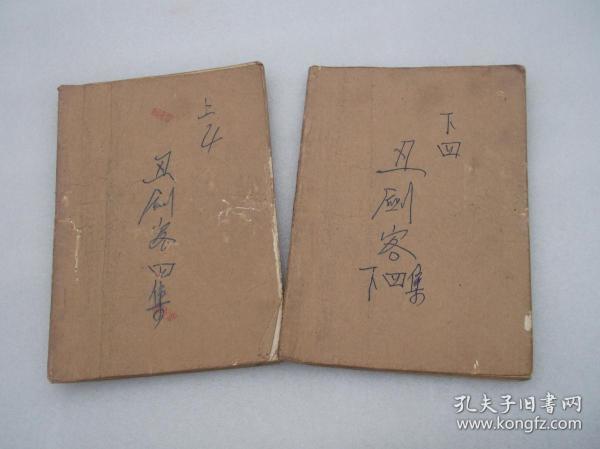 上4
丑剑客四集
下四
丑劍客
下四集
孔夫子旧書网
www.kongfz.com